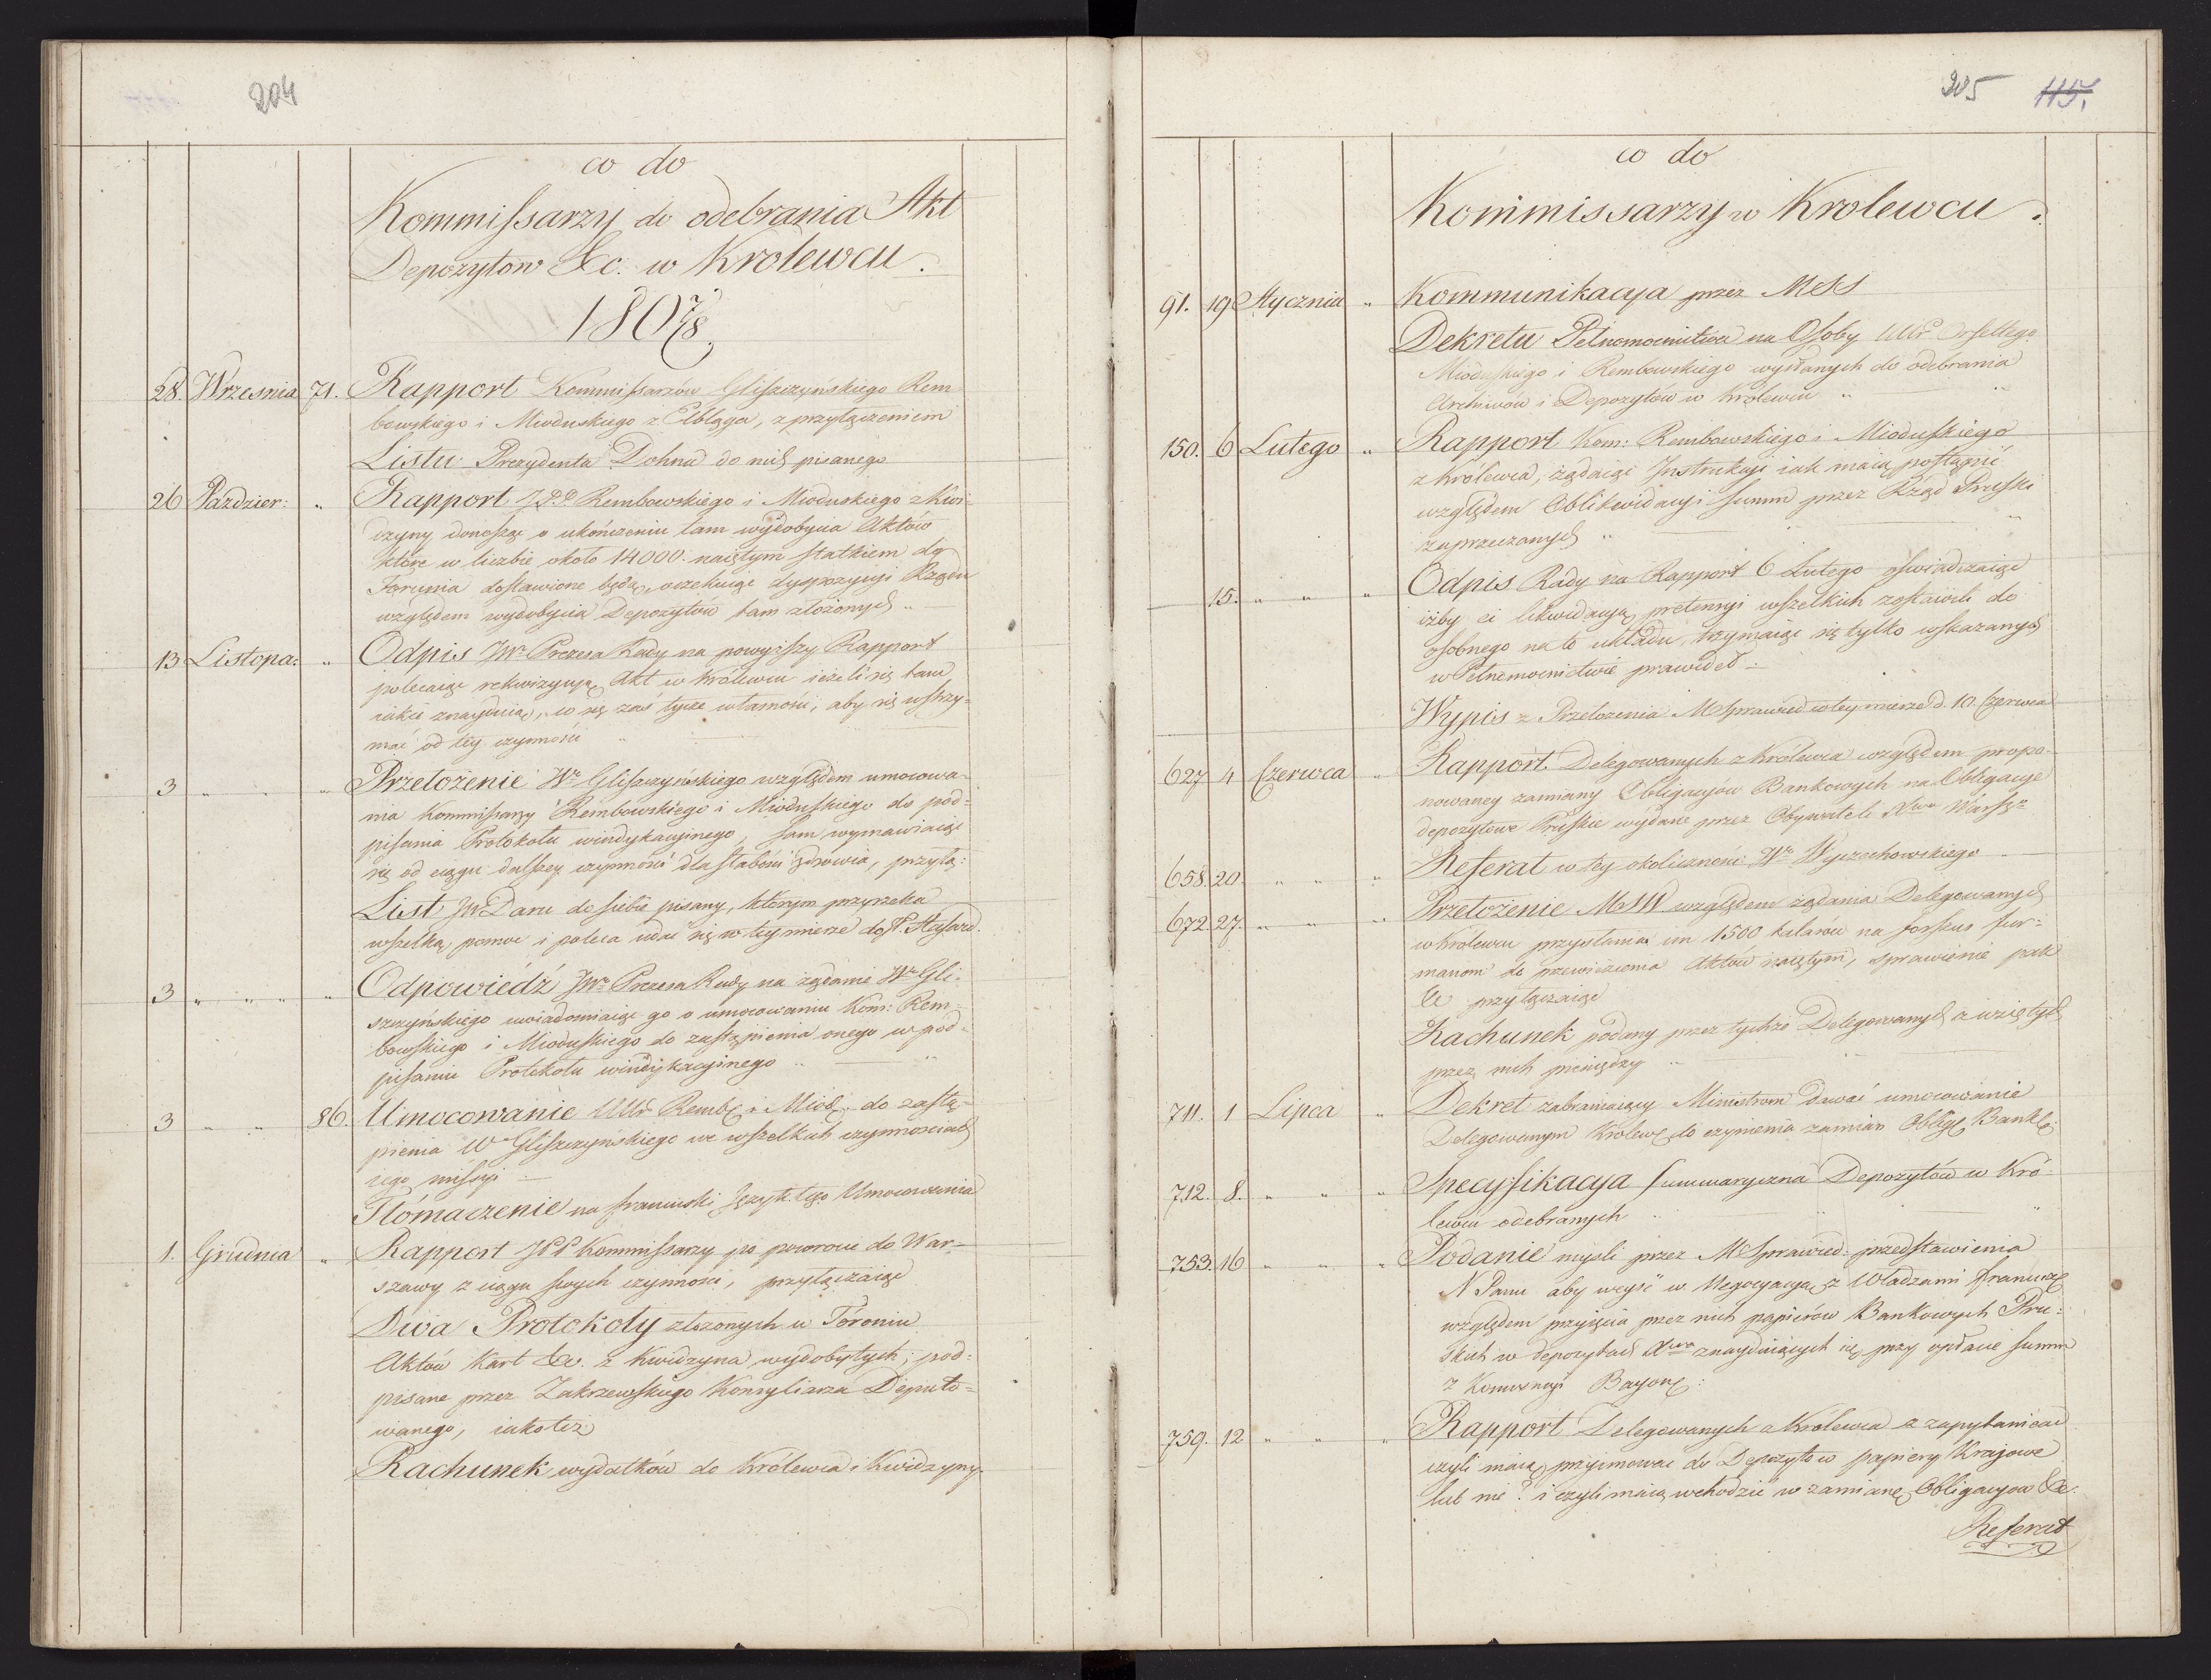 204
co do
Kommissarzy do odebrania Akt
Depozytow &c. w Krolewcu.
1807/8
28. Wrzesnia 71. Rapport Kommissarzów Gliszczynskiego Rem-
bowskiego i Mioduskiego z Elbląga, z przyłączeniem
Listu Prezydenta Dohna do nich pisanego
26 Pazdzier: " Rapport JPP Rembowskiego i Mioduskiego z Kwi-
dzyny donosząc o ukończeniu tam wydobycia Aktów
które w liczbie około 14000 naiętym statkiem do
Torunia dostawione będą, oczekuiąc dyspozycyi Rządu
względem wydobycia Depozytów tam złożonych "
13 Listopa: " Odpis JW Prezesa Rady na powyższy Rapport
polecaiąc rekwizycyą Akt w Królewcu ieżeli się tam
iakie znayduią, co się zaś tycze własności, aby się wstrzy=
mać od tey czynności "
3 " " " Przełożenie Wo Gliszczyńskiego względem umocowa-
nia Kommissarzy Rembowskiego i Mioduskiego do pod=
pisania Protokołu windykacyinego, sam wymawiaiąc
się od ciągu dalszey czynności dla słabości zdrowia, przyłą:
List JW Daru do siebie pisany, którym przyrzeka
wszelką pomoc i poleca udać się w tey mierze do P. Stassard.
3 " " " " Odpowiedź JWo Prezesa Rady na żądanie Wo Gli-
szczyńskiego uwiadomiaiąc go o umocowaniu Kom: Rem-
bowskiego i Mioduskiego do zastąpienia onego w pod-
pisaniu Protokołu windykacyinego "
3 " " 86. Umocowanie Remb: i Miod: do zastą-
pienia Wo Gliszczyńskiego we wszelkich czynnościach
iego missyi
Tłómaczenie na francuski Język tego Umocowania
1. Grudnia " Rapport JPP Kommissarzy po powrocie do War-
szawy z ciągu swych czynności, przyłączaiąc
Dwa Protokoły złożonych w Toroniu
Aktów Kart &c. z Kwidzyna wydobytych; pod-
pisane przez Zakrzewskiego Konsyliarza Deputo=
wanego, iakoteż
Rachunek wydatków do Królewca i Kwidzyny.
205 115.
co do
Kommissarzy w Krolewcu.
91. 19 Stycznia " Kommunikacya przez
Dekretu Pełnomocnictwa na Osoby
Mioduskiego i Rembowskiego wysłanych do odebrania
Archiwów i Depozytów w Królewcu "
150. 6 Lutego " Rapport Kom: Rembowskiego i Mioduskiego
z Królewca, żądaiąc Instrukcyi iak maią postąpić
względem Oblikwidacyi summ przez Rząd Pruski
zaprzeczanych "
15. " " " Odpis Rady na Rapport 6 Lutego oświadczaiąc
iżby ci likwidacyą pretensyi wszelkich zostawili do
osobnego na to układu, trzymaiąc się tylko wskazanych
w Pełnomocnictwie prawideł
Wypis z Przełożenia MSprawied w tey mierze d. 10. Czerwca
627 4 Czerwca " Rapport Delegowanych z Królewca względem propo-
nowaney zamiany Obligacyów Bankowych na Obligacye
depozytowe Pruskie wydane przez Obywateli Xtwa Warsz:
658. 20. " " " Referat w tey okoliczności Wo Wyczechowskiego
672. 27. " " " Przełożenie MSW względem żądania Delegowanych
w Krolewcu przysłania im 1500 talarów na forszus fur=
manom do przewiezienia Aktów naiętym, sprawienie pak
&c przyłączaiąc
Rachunek podany przez tychże Delegowanych z wziętych
przez nich pieniędzy "
711. 1 Lipca " Dekret zabraniaiący Ministrom dawać umocowanie
Delegowanym Krolew: do czynienia zamian Oblig: Bank:
712. 8. " " " Specyfikacya summaryczna Depozytów w Kró-
lewcu odebranych "
753. 16 " " " Podanie myśli przez MSprawied: przedstawienia
N Panu aby weyść w Negocyacyą z Władzami francuz:
względem przyięcia przez nich papierów Bankowych Pru:
skich w depozytach Xtwa znayduiących się, przy opłacie summ
z Konwencyi Bayon:
759. 12 " " " Rapport Delegowanych z Królewca z zapytaniem
czyli maią przyimować do Depozytów papiery Kraiowe
lub nie? i czyli maią wchodzić w zamianę Obligacyów &c.
Referat